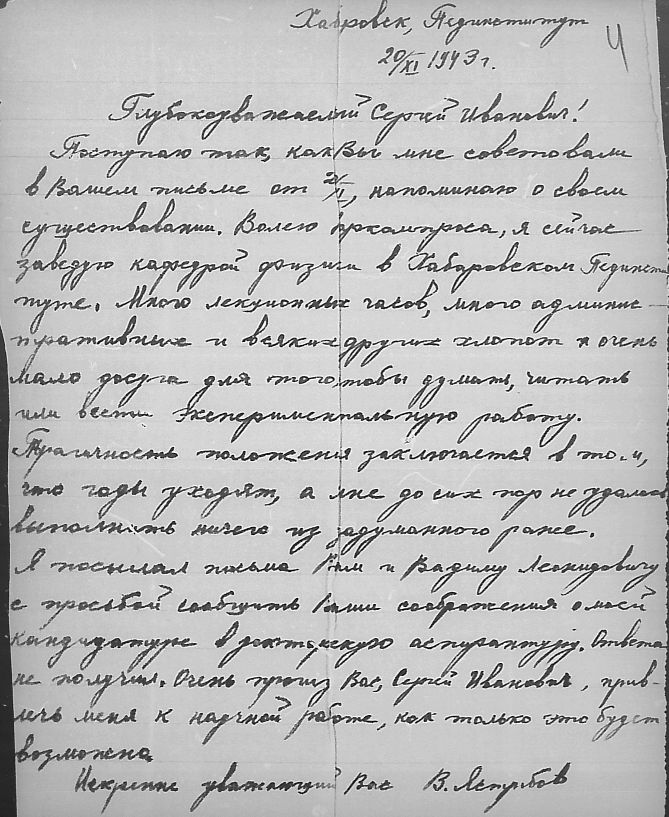 Хабровск, Пединститут
4
20/XI 1943 г.
Глубокоуважаемый Сергей Иванович!
Поступаю так, как Вы мне советовали
в Вашем письме от /XI, напоминаю о своем
существовании. Волею Наркомпроса, я сейчас
заведую кафедрой физики в Хабаровском Пединсти
туте. Много лекционных часов, много админис-
тративных и всяких других хлопот и очень
мало досуга для того, чтобы думать, читать
или вести экспериментальную работу.
Трагичность положения заключается в том,
что годы уходят, а мне до сих пор не удалось
выполнить ничего из задуманного ранее.
Я посылал письма Вам и Вадиму Леонидовичу
с просьбой сообщить Ваши соображения о моей
кандидатуре в докторскую аспирантуру. Ответа
не получил. Очень прошу Вас, Сергей Иванович, прив-
лечь меня к научной работе, как только это будет
возможно.
Искренне уважающий Вас В. Ястребов